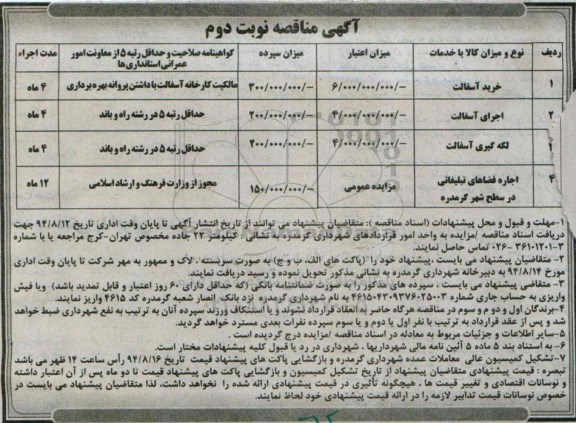 آگهی مناقصه نوبت دوم
ردیف نوع و میزان کالا یا خدمات میزان اعتبار میزان سپرده گواهینامه صلاحیت و حداقل رتبه ۵ از معاونت امور عمرانی استانداری‌ها مدت اجراء
۱ خرید آسفالت ۶/۰۰۰/۰۰۰/۰۰۰/- ۳۰۰/۰۰۰/۰۰۰/- مالکیت کارخانه آسفالت با داشتن پروانه بهره برداری ۴ ماه
۲ اجرای آسفالت ۴/۰۰۰/۰۰۰/۰۰۰/- ۲۰۰/۰۰۰/۰۰۰/- حداقل رتبه ۵ در رشته راه و باند ۴ ماه
لکه گیری آسفالت ۴/۰۰۰/۰۰۰/۰۰۰/- ۲۰۰/۰۰۰/۰۰۰/- حداقل رتبه ۵ در رشته راه و باند ۴ ماه
۴ اجاره فضاهای تبلیغاتی در سطح شهر گرمدره مزایده عمومی ۱۵۰/۰۰۰/۰۰۰/- مجوز از وزارت فرهنگ و ارشاد اسلامی ۱۲ ماه
۱-مهلت و قبول و محل پیشنهادات (اسناد مناقصه ): متقاضیان پیشنهاد می توانند از تاریخ انتشار آگهی تا پایان وقت اداری تاریخ ۹۴/۸/۱۲ جهت
دریافت اسناد مناقصه /مزایده به واحد امور قراردادهای شهرداری گرمدره به نشانی : کیلومتر ۲۲ جاده مخصوص تهران-کرج مراجعه یا با شماره
۳-۳۶۱۰۱۲۰۱-۰۲۶ تماس حاصل نمایند.
۲- متقاضیان پیشنهاد می بایست ،پیشنهاد خود را (پاکت های الف، ب و ج) به صورت سربسته ، لاک و ممهور به مهر شرکت تا پایان وقت اداری
مورخ ۹۴/۸/۱۴ به دبیرخانه شهرداری گرمدره به نشانی مذکور تحویل نموده و رسید دریافت نمایند.
۳- متقاضی پیشنهاد می بایست ، سپرده های مذکور را به صورت ضمانتنامه بانکی (که حداقل دارای ۶۰ روز اعتبار و قابل تمدید باشد) ویا فیش
واریزی به حساب جاری شماره ۴۶۱۵۰۴۳۰۹۳۷۶۰۲۵۰۰۳ به نام شهرداری گرمدره نزد بانک انصار شعبه گرمدره کد ۴۶۱۵ واریز نمایند.
۴-برندگان اول و دوم و سوم در مناقصه هرگاه حاضر به انعقاد قرارداد نشوند و یا استنکاف ورزند سپرده آنان به ترتیب به نفع شهرداری ضبط خواهد
شد و پس از عقد قرارداد به ترتیب با نفر اول یا دوم و یا سوم سپرده نفرات بعدی مسترد خواهد گردید.
۵-سایر اطلاعات و جزئیات مربوط به معادله در اسناد مناقصه /مزایده درج گردیده است .
۶- به استناد بند ۵ ماده ۵ آئین نامه مالی شهرداریها ، شهرداری در رد یا قبول کلیه پیشنهادات مختار است.
۷-تشکیل کمیسیون عالی معاملات عمده شهرداری گرمدره و بازگشایی پاکت های پیشنهاد قیمت تاریخ ۹۴/۸/۱۶ رأس ساعت ۱۴ ظهر می باشد
تبصره : قیمت پیشنهادی متقاضیان پیشنهاد از تاریخ تشکیل کمیسیون و بازگشایی پاکت های پیشنهاد قیمت تا دو ماه پس از آن اعتبار داشته
و نوسانات اقتصادی و تغییر قیمت ها ، هیچگونه تأثیری در قیمت پیشنهادی ارائه شده را نخواهد داشت، لذا متقاضیان پیشنهاد می بایست در
خصوص نوسانات قیمت تدابیر لازمه را در ارائه قیمت پیشنهادی خود لحاظ نمایند.